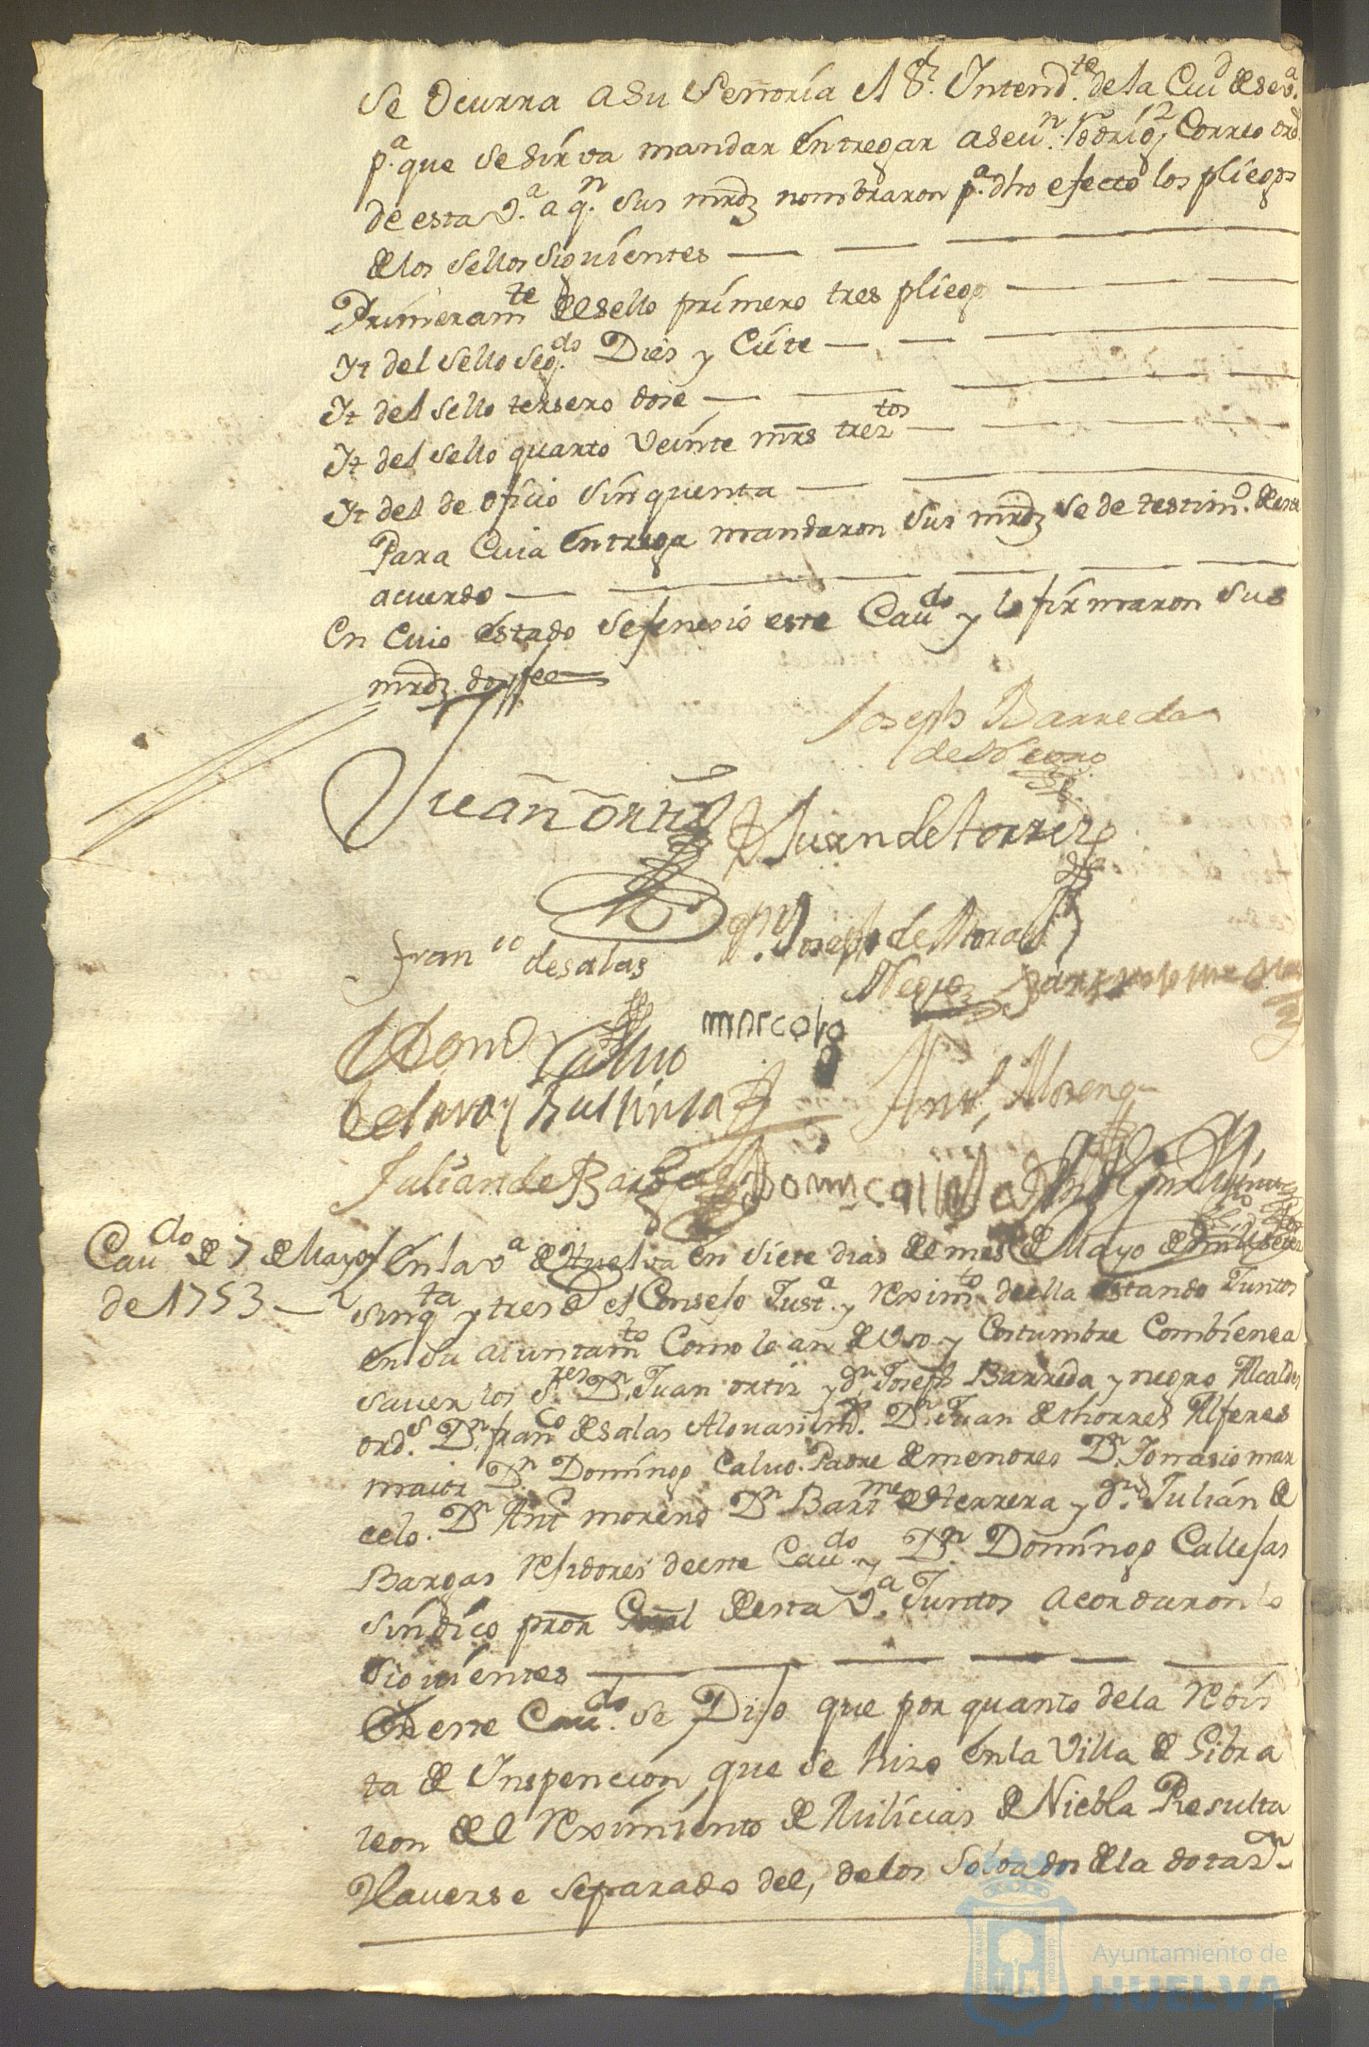 Se Ocurra a Su Señoría el Sr. Intendte. de la Ciud de Seva.
pa. que se sirva mandar entregar a Seun. Rodrigz Correo ord.
de esta Va. a qn. Sus mrdz nombraron pa. dho efecto los pliegos
de los Sellos siguientes
Primeramte de sello primero tres pliegos
It del Sello Segdo. Dies y Ciete
It del Sello tersero dose
It del Sello quarto veinte mrs treztos
It del de Oficio sinquenta
Para Cuia entrega mandaron Sus mrdz se de testimo. de este
acuerdo
En Cuio estado Se fenecio este Caudo y lo firmaron Sus
mrdz doy fee
Joseph Barreda
de Negro
Juan Ortiz
Juan de torres
Joseph de Mora
Negro
Franco de salas
Domo Calvo
marcelo
Anto. Moreno
Julian de Bargas
Domingo Callejas
Caudo de 7 de Mayo
de 1753
En la va de Huelva en Siete dias de mes de Mayo de mil setes
sinqta y tres el Consejo Justa. y Reximto de ella estando Juntos
en su aiuntamto Como lo an de Uso y Costumbre Combiene a
Saver los Sres Dn. Juan ortiz y dn. Joseph Barreda y negro Alcaldes
ords. Dn. franco de Salas Alguasil mor. Dn. Juan de thorres Alferes
maior Dn Domingo Calvo. Padre de menores Dn. Tomasio mar
celo. Dn Anto moreno Dn Barme de Herrera y dn. Julián de
Bargas Residores de este Caudo. y Dn. Domingo Callejas
Síndico pror Genal de esta Va. Juntos acordaron lo
siguientes
En este Caudo. se Dijo que por quanto de la Rebis
ta de Inspencion que se hizo en la Villa de Gibra
leon de el Reximiento de Milicias de Niebla Resulta
Haverse Separado del, de los Soldados de la dotazn
Ayuntamiento de
HUELVA